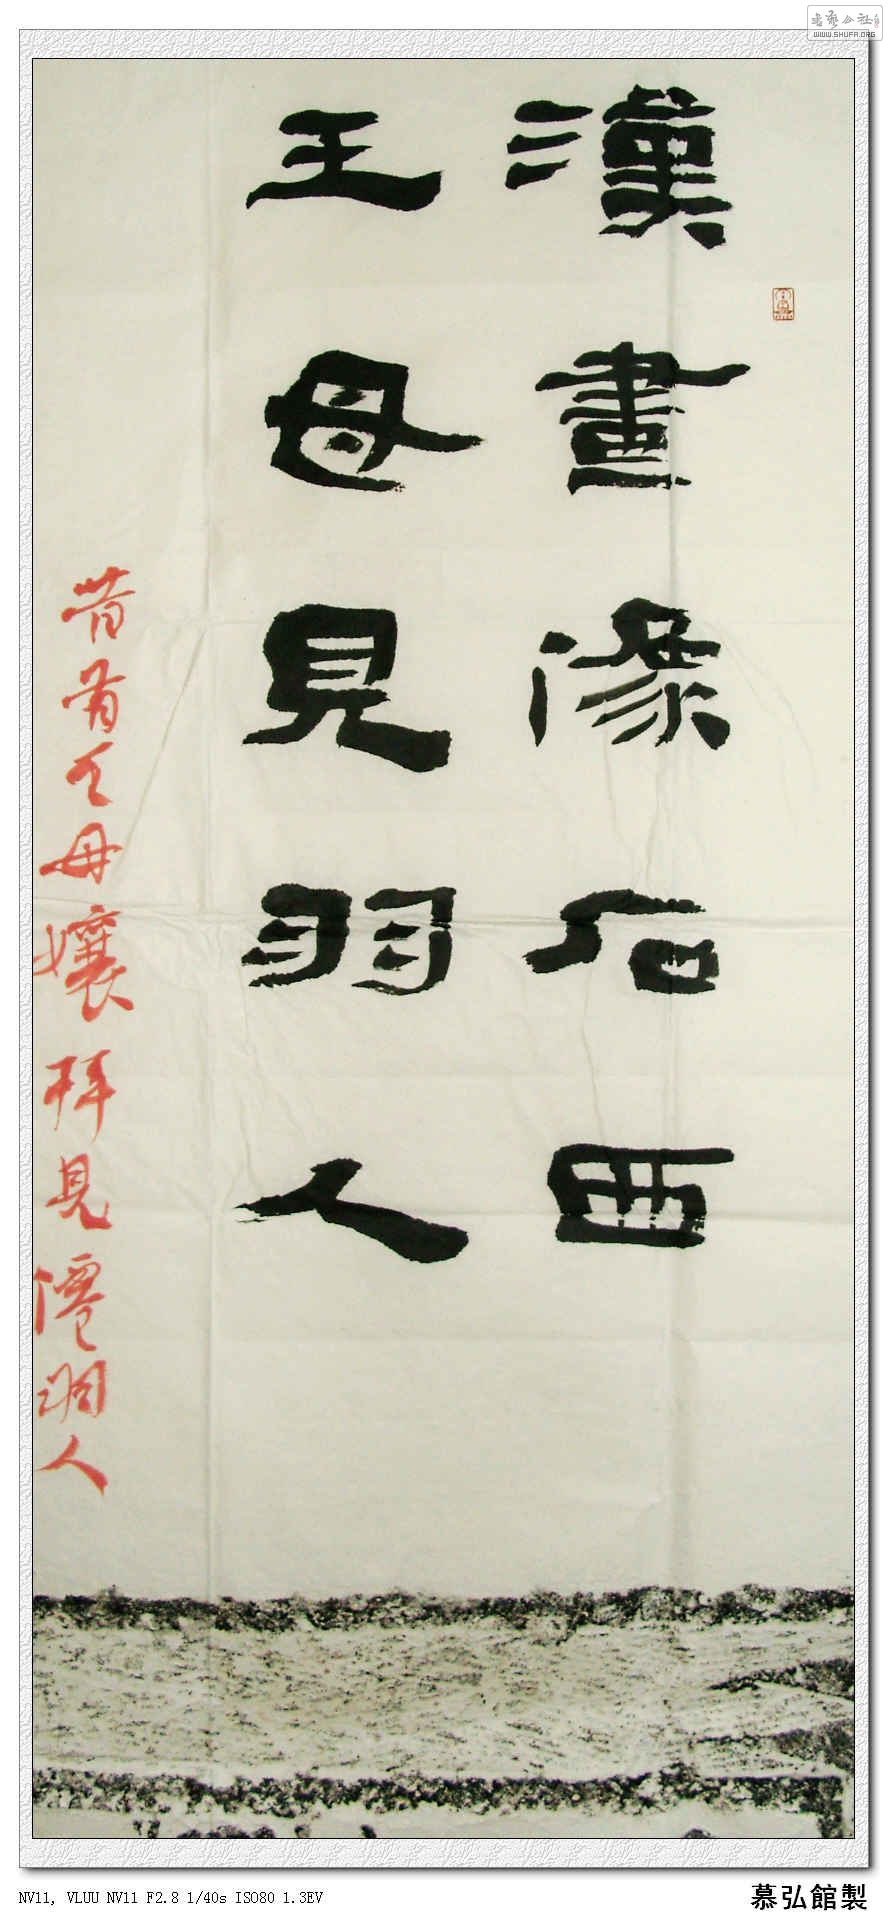 書藝公社
WWW.SHUFA.ORG
漢畫像石西
王母見羽人
昔母孃拜見僊羽人
NV11, VLUU NV11 F2.8 1/40s ISO80 1.3EV
慕弘館製